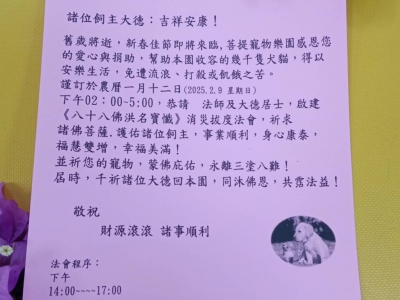 諸位飼主大德：吉祥安康！
舊歲將逝，新春佳節即將來臨，菩提寵物樂園感恩您
的愛心與捐助，幫助本園收容的幾千隻犬貓，得以
安樂生活，免遭流浪、打殺或飢餓之苦。
謹訂於農曆一月十二日(2025.2.9 星期日)
下午02：00~5:00，恭請 法師及大德居士，啟建
《八十八佛洪名寶懺》消災拔度法會，祈求
諸佛菩薩，護佑諸位飼主，事業順利，身心康泰，
福慧雙增，幸福美滿！
並祈您的寵物，蒙佛庇佑，永離三塗八難！
屆時，千祈諸位大德回本園，同沐佛恩，共霑法益！
敬祝
財源滾滾 諸事順利
法會程序：
下午
14:00~~~~17:00